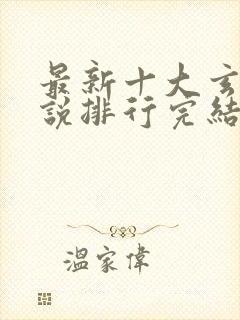 最新十大玄
說排行完結
溫家偉